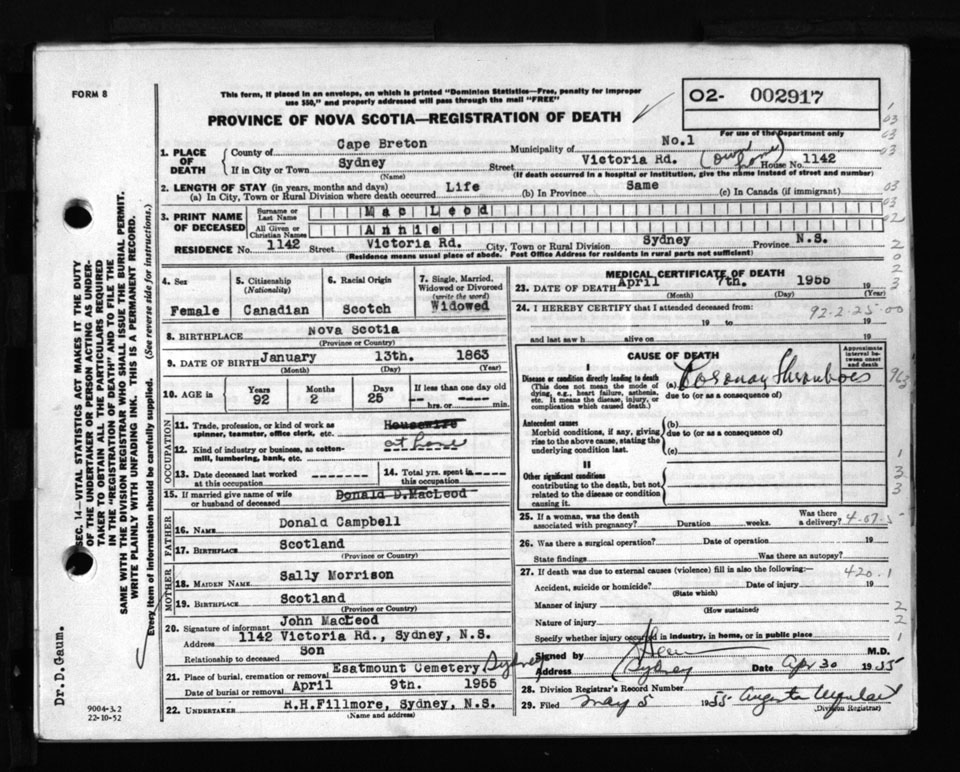 FORM 8
This form, if placed in an envelope, on which is printed "Dominion Statistics—Free, penalty for improper
use $50," and properly addressed will pass through the mail "FREE"
PROVINCE OF NOVA SCOTIA—REGISTRATION OF DEATH
O2- 002917
For use of the Department only
1. PLACE OF DEATH
County of Cape Breton Municipality of No.1
If in City or Town Sydney Street Victoria Rd. (own home) House No. 1142
(Name) (If death occurred in a hospital or institution, give the name instead of street and number)
2. LENGTH OF STAY (in years, months and days)
(a) In City, Town or Rural Division where death occurred Life (b) In Province Same (c) In Canada (if immigrant)
3. PRINT NAME OF DECEASED
Surname or Last Name Mac Leod
All Given or Christian Names Annie
RESIDENCE No. 1142 Street Victoria Rd. City, Town or Rural Division Sydney Province N.S.
(Residence means usual place of abode. Post Office Address for residents in rural parts not sufficient)
4. Sex Female
5. Citizenship (Nationality) Canadian
6. Racial Origin Scotch
7. Single, Married, Widowed or Divorced (write the word) Widowed
8. BIRTHPLACE Nova Scotia
(Province or Country)
9. DATE OF BIRTH January 13th. 1863
(Month) (Day) (Year)
10. AGE IS Years 92 Months 2 Days 25 If less than one day old
hrs. or min.
OCCUPATION
11. Trade, profession, or kind of work as spinner, teamster, office clerk, etc. Housewife
12. Kind of industry or business, as cotton-mill, lumbering, bank, etc. at home
13. Date deceased last worked at this occupation
14. Total yrs. spent in this occupation
15. If married give name of wife or husband of deceased Donald D.MacLeod
FATHER
16. NAME Donald Campbell
17. BIRTHPLACE Scotland
(Province or Country)
MOTHER
18. MAIDEN NAME Sally Morrison
19. BIRTHPLACE Scotland
(Province or Country)
20. Signature of informant John MacLeod
Address 1142 Victoria Rd., Sydney, N.S.
Relationship to deceased Son
21. Place of burial, cremation or removal Esatmount Cemetery Sydney
Date of burial or removal April 9th. 1955
22. UNDERTAKER R.H.Fillmore, Sydney, N.S.
(Name and address)
MEDICAL CERTIFICATE OF DEATH
23. DATE OF DEATH April 7th. 1955 19
(Month) (Day) (Year)
24. I HEREBY CERTIFY that I attended deceased from:
92-2-25-00
19 to 19
and last saw h alive on 19
CAUSE OF DEATH
Approximate interval between onset and death
I
Disease or condition directly leading to death
(This does not mean the mode of dying, e.g., heart failure, asthenia, etc. It means the disease, injury, or complication which caused death.)
(a) Coronary Thrombosis
due to (or as a consequence of)
Antecedent causes
Morbid conditions, if any, giving rise to the above cause, stating the underlying condition last.
(b)
due to (or as a consequence of)
(c)
II
Other significant conditions
contributing to the death, but not related to the disease or condition causing it.
25. If a woman, was the death associated with pregnancy? Duration weeks. Was there a delivery?
26. Was there a surgical operation? Date of operation 19
State findings Was there an autopsy?
27. If death was due to external causes (violence) fill in also the following:—
420.1
Accident, suicide or homicide? Date of injury 19
(State which)
Manner of injury
(How sustained)
Nature of injury
Specify whether injury occurred in industry, in home, or in public place
Signed by M.D.
Address Sydney Date Apr 30 1955
28. Division Registrar's Record Number
29. Filed May 5 1955
(Division Registrar)
SEC. 14—VITAL STATISTICS ACT MAKES IT THE DUTY
OF THE UNDERTAKER OR PERSON ACTING AS UNDER-
TAKER TO OBTAIN ALL THE PARTICULARS REQUIRED
IN THE "REGISTRATION OF DEATH" AND TO FILE THE
SAME WITH THE DIVISION REGISTRAR WHO SHALL ISSUE THE BURIAL PERMIT.
WRITE PLAINLY WITH UNFADING INK. THIS IS A PERMANENT RECORD.
Every item of information should be carefully supplied. (See reverse side for instructions.)
Dr. D. Gaum.
9004-3.2
22-10-52